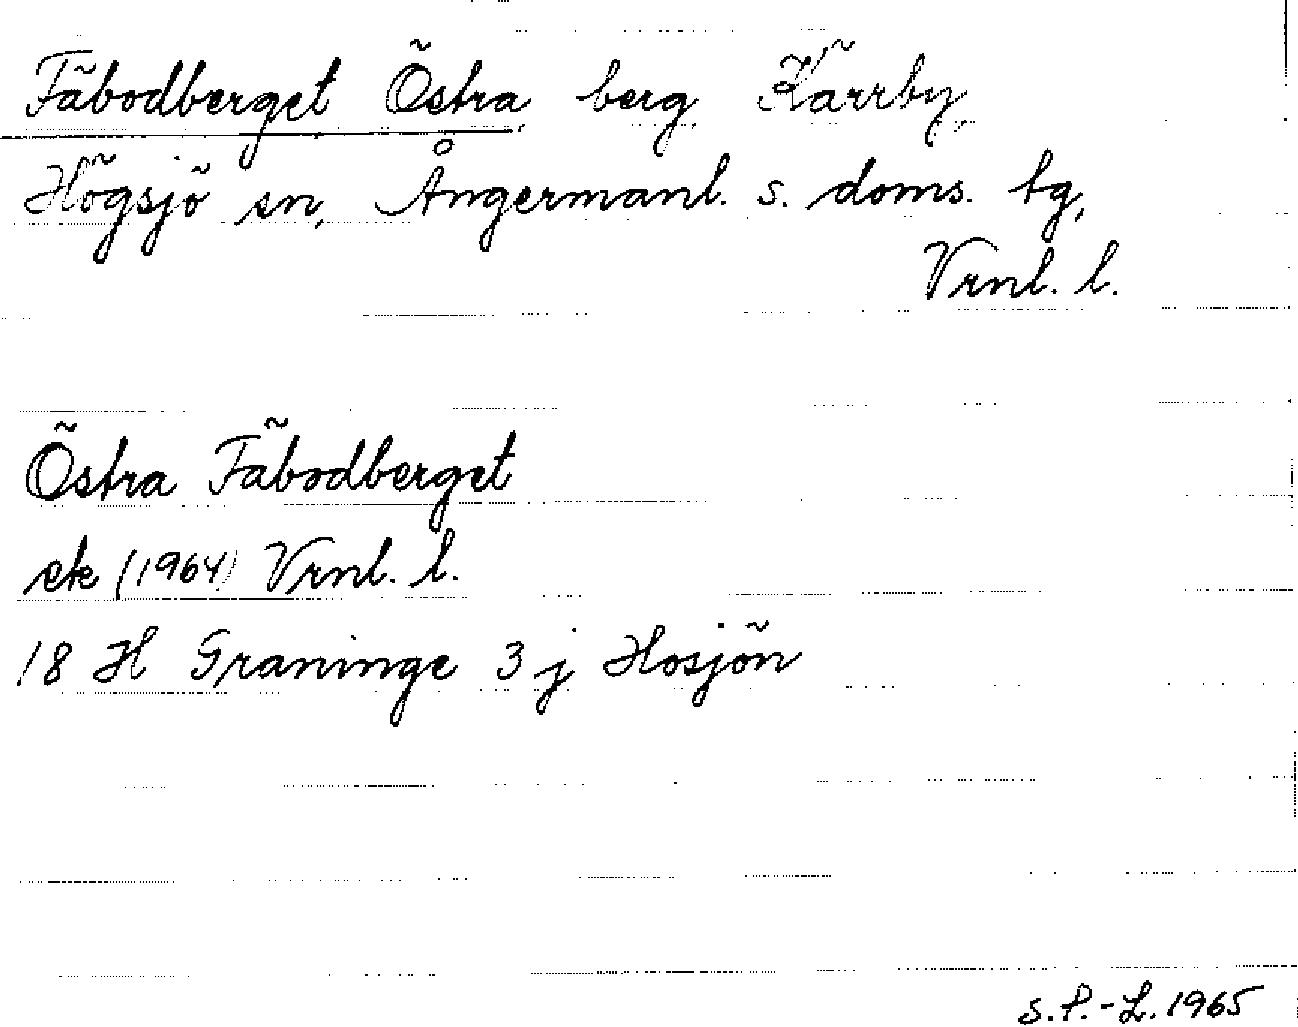 Fäbodberget Östra berg Kärrby,
Högsjö sn, Ångermanl. s. doms. tg,
Vrnl. l.
Östra Fäbodberget
ek (1964) Vrnl. l.
18 H Graninge 3 j Hosjön
S.P.-L. 1965